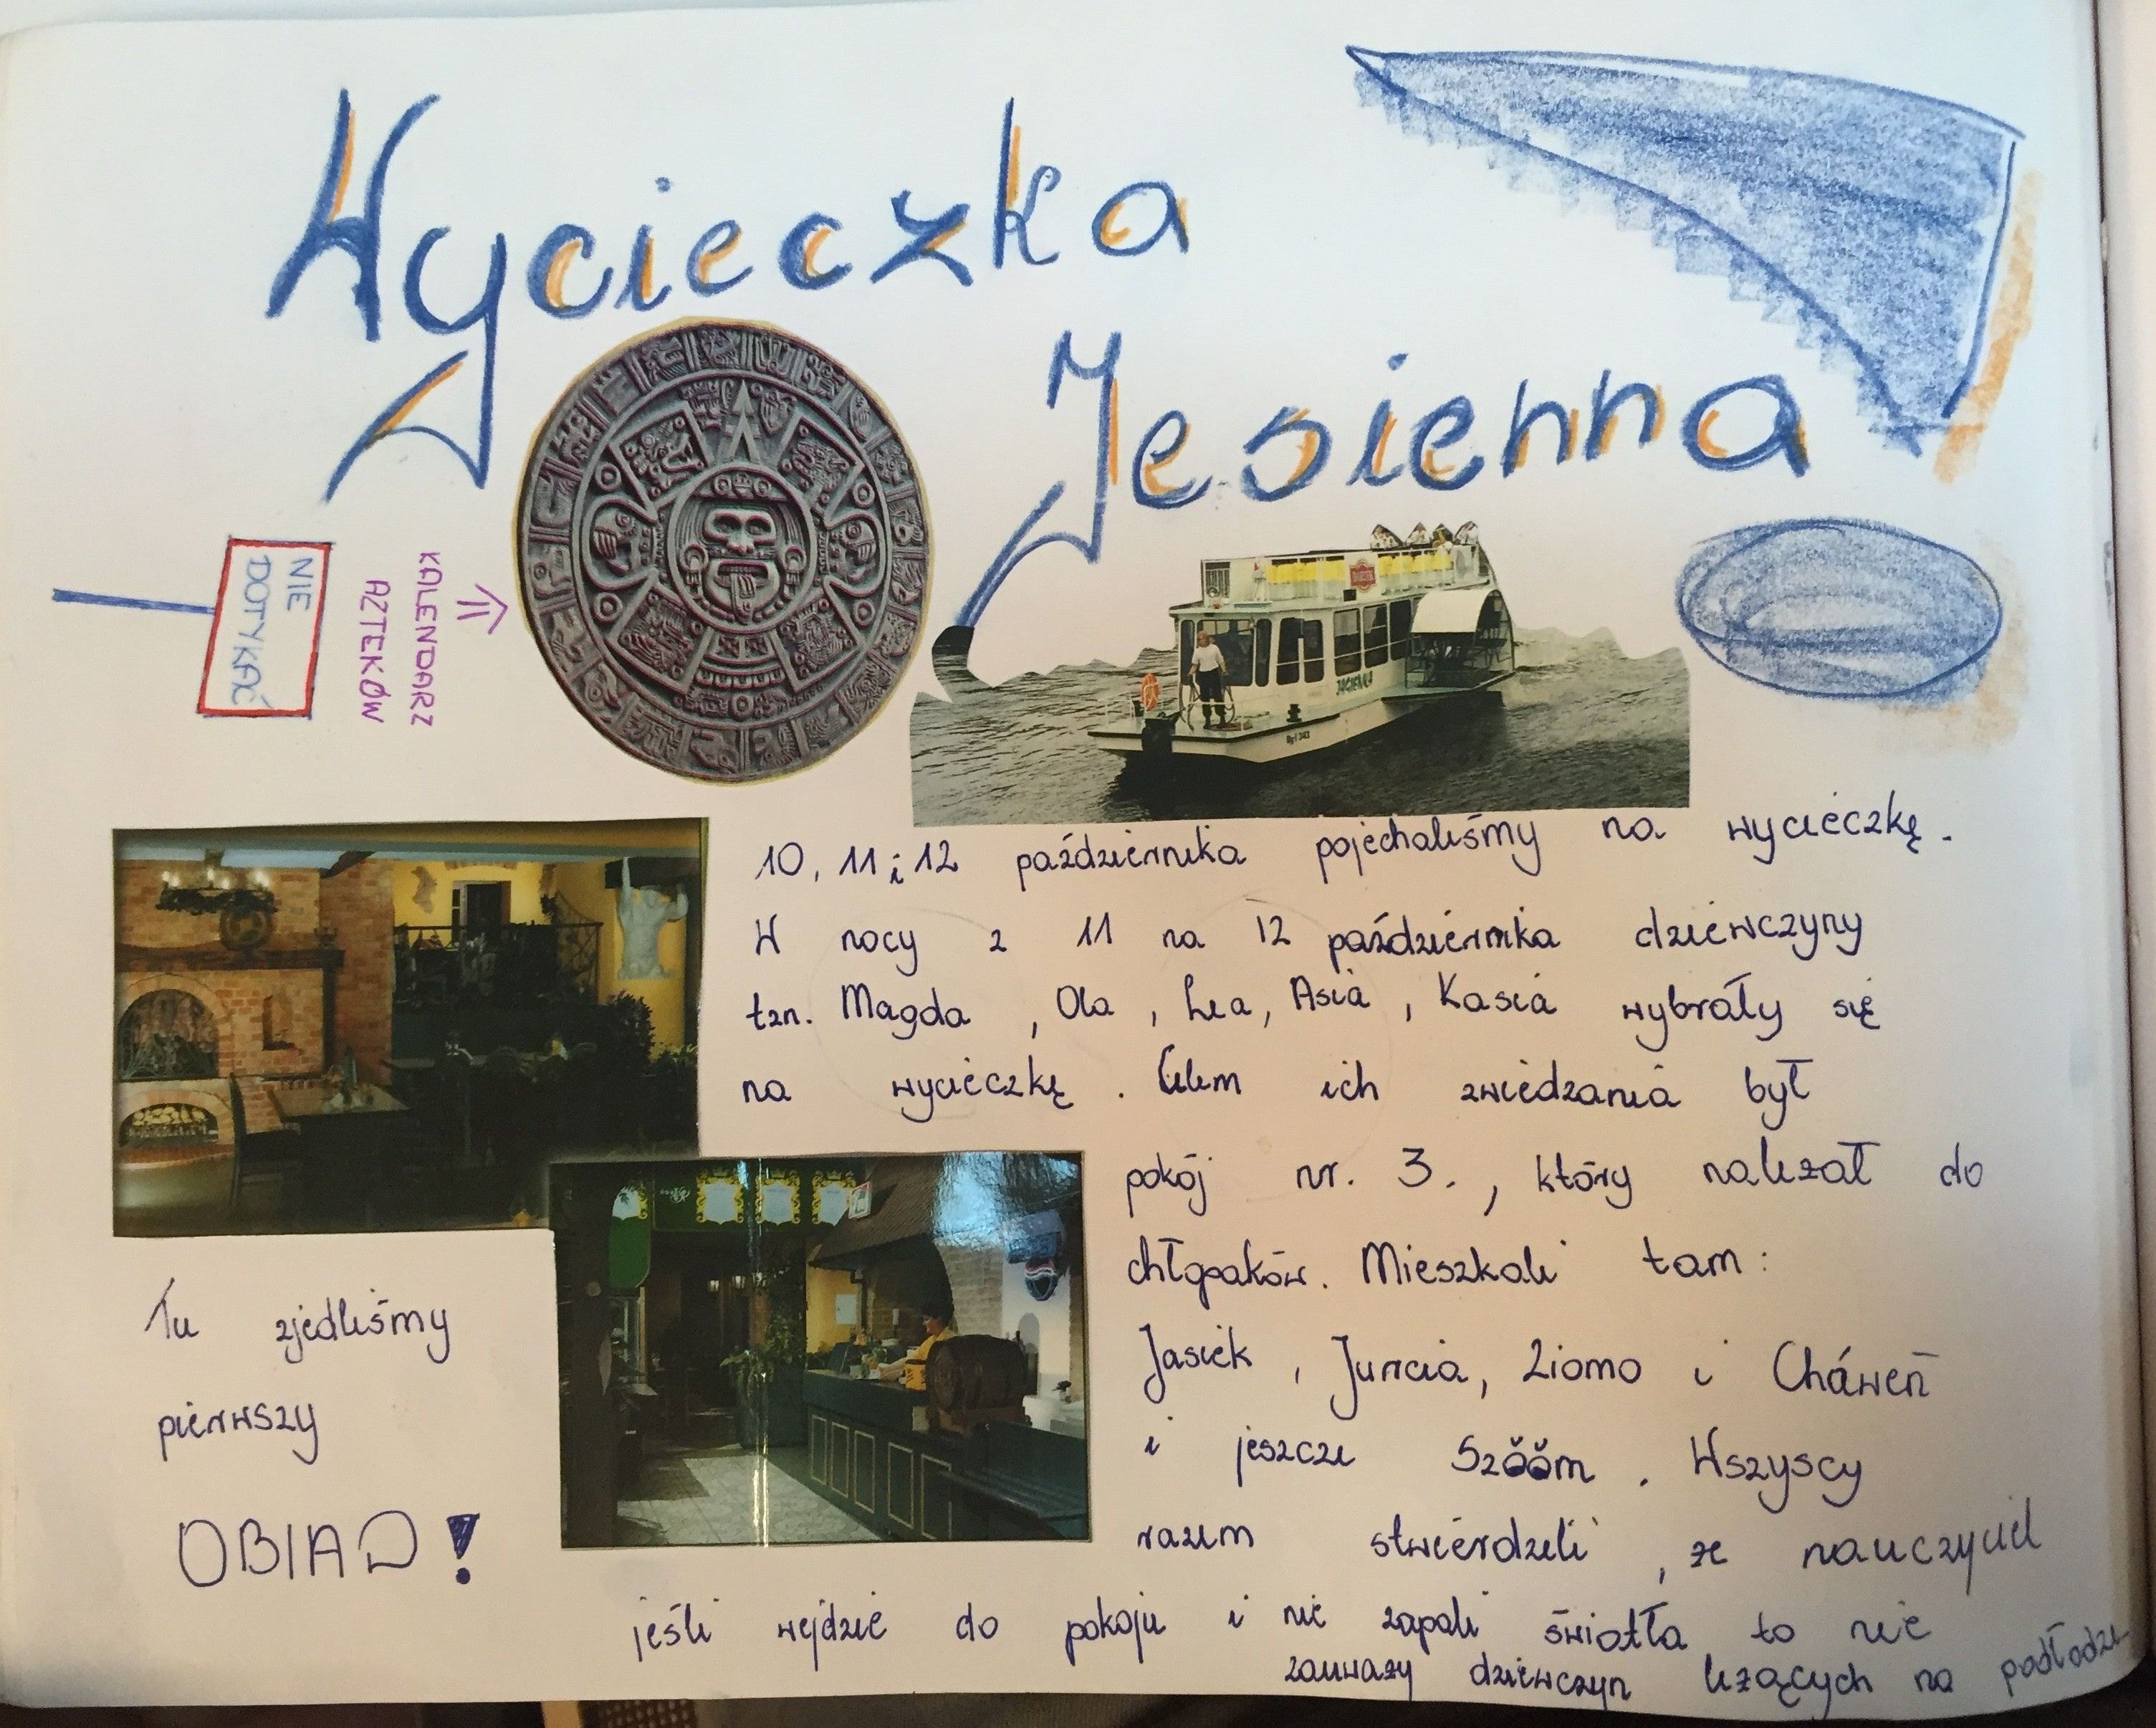 Wycieczka
Jesienna
NIE
DOTYKAĆ
KALENDARZ
AZTEKÓW
JAGIENKA
10, 11 i 12 października pojechaliśmy na wycieczkę.
W nocy z 11 na 12 października dziewczyny
tzn. Magda, Ola, Lea, Asia, Kasia wybrały się
na wycieczkę. Celem ich zwiedzania był
pokój nr. 3., który należał do
chłopaków. Mieszkali tam:
Jasiek, Jurcia, Ziomo i Cháweń
i jeszcze Szǒǒm. Wszyscy
razem stwierdzili, że nauczyciel
jeśli wejdzie do pokoju i nie zapali światła to nie
zauważy dziewczyn leżących na podłodze
Tu zjedliśmy
pierwszy
OBIAD!